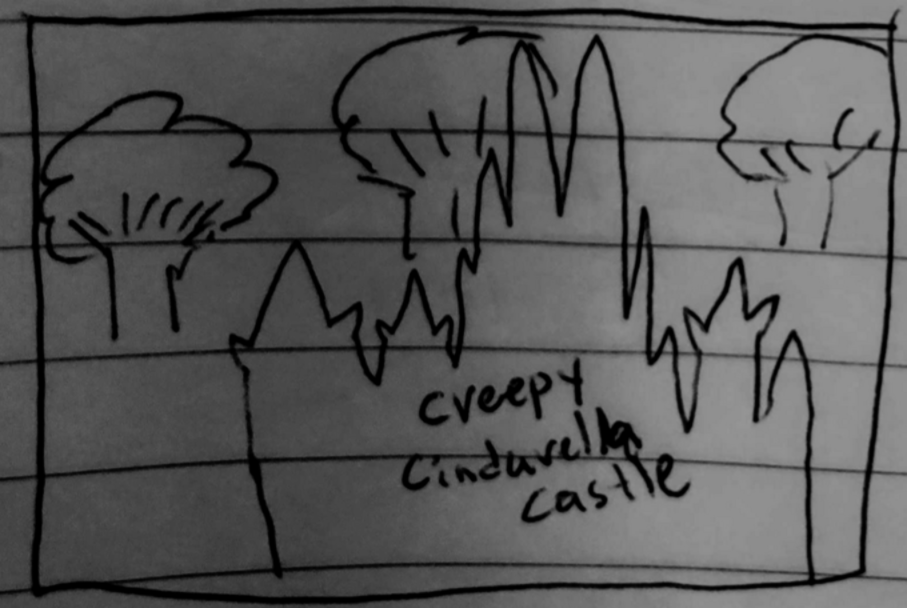 creepy
cindurella
castle